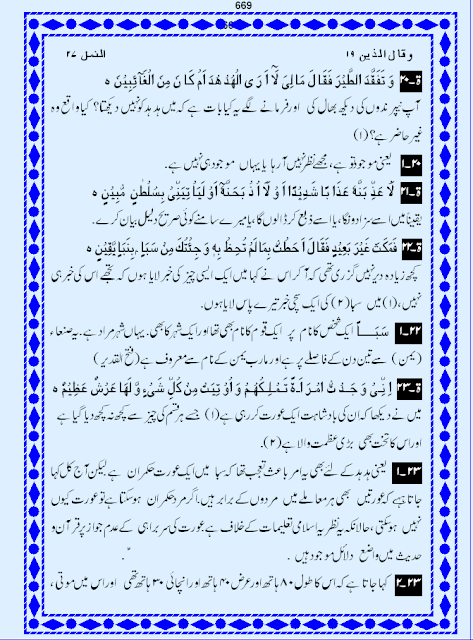 669
وقال الذین ۱۹ النمل ۲۷
ق۔۲۰ وَ تَفَقَّدَ الطَّيْرَ فَقَالَ مَالِيَ لَآ اَرَى الْهُدْهُدَ اَمْ كَانَ مِنَ الْغَآئِبِيْنَ ه
آپ نے پرندوں کی دیکھ بھال کی اور فرمانے لگے یہ کیا بات ہے کہ میں ہدہد کو نہیں دیکھتا؟ کیا واقع وہ
غیر حاضر ہے؟(۱)
۲۰۔۱ یعنی موجود تو ہے، مجھے نظر نہیں آرہا یا یہاں موجود ہی نہیں ہے۔
ق۔۲۱ لَا عَذِّ بَنَّهُ عَذَا بًا شَدِيْدًا اَوْ لَا اَذْ بَحَنَّهُٓ اَوْ لَيَاْ تِيَنِّيْ بِسُلْطٰنٍ مُّبِيْنٍ ه
یقیناً میں اسے سزا دونگا، یا اسے ذبح کر ڈالوں گا، یا میرے سامنے کوئی صریح دلیل بیان کرے۔
ق۔۲۲ فَمَكَثَ غَيْرَ بَعِيْدٍ فَقَالَ اَحَطْتُّ بِمَالَمْ تُحِطْ بِهٖ وَ جِئْتُكَ مِنْ سَبَاٍ ۢ بِنَبَاٍ يَّقِيْنٍ ه
کچھ زیادہ دیر نہیں گزری تھی کہ آکر اس نے کہا میں ایک ایسی چیز کی خبر لایا ہوں کہ تجھے اس کی خبر ہی
نہیں، (۱) میں سبا (۲) کی ایک سچی خبر تیرے پاس لایا ہوں۔
۲۲۔۱ سَبَــاً ایک شخص کا نام پر ایک قوم کا نام بھی تھا اور ایک شہر کا بھی۔ یہاں شہر مراد ہے۔ یہ صنعاء
(یمن) سے تین دن کے فاصلے پر ہے اور مارب یمن کے نام سے معروف ہے (فتح القدیر)
ق۔۲۳ اِ نِّيْ وَ جَدْ تُّ امْرَ اَ ةً تَمْلِكُهُمْ وَ اُوْ تِيَتْ مِنْ كُلِّ شَيْءٍ وَّ لَهَا عَرْشٌ عَظِيْمٌ ه
میں نے دیکھا کہ ان کی بادشاہت ایک عورت کر رہی ہے (۱) جسے ہر قسم کی چیز سے کچھ نہ کچھ دیا گیا ہے
اور اس کا تخت بھی بڑی عظمت والا ہے (۲)۔
۲۳۔۱ یعنی ہدہد کے لئے بھی یہ امر باعث تعجب تھا کہ سبا میں ایک عورت حکمران ہے لیکن آج کل کہا
جاتا ہے کہ عورتیں بھی ہر معاملے میں مردوں کے برابر ہیں، اگر مرد حکمران ہو سکتا ہے تو عورت کیوں
نہیں ہو سکتی، حالانکہ یہ نظریہ اسلامی تعلیمات کے خلاف ہے عورت کی سربراہی کے عدم جواز پر قرآن و
حدیث میں واضع دلائل موجود ہیں ۔
۲۳۔۲ کہا جاتا ہے کہ اس کا طول ۸۰ ہاتھ اور عرض ۴۰ ہاتھ اور انچائی ۳۰ ہاتھ تھی اور اس میں موتی،